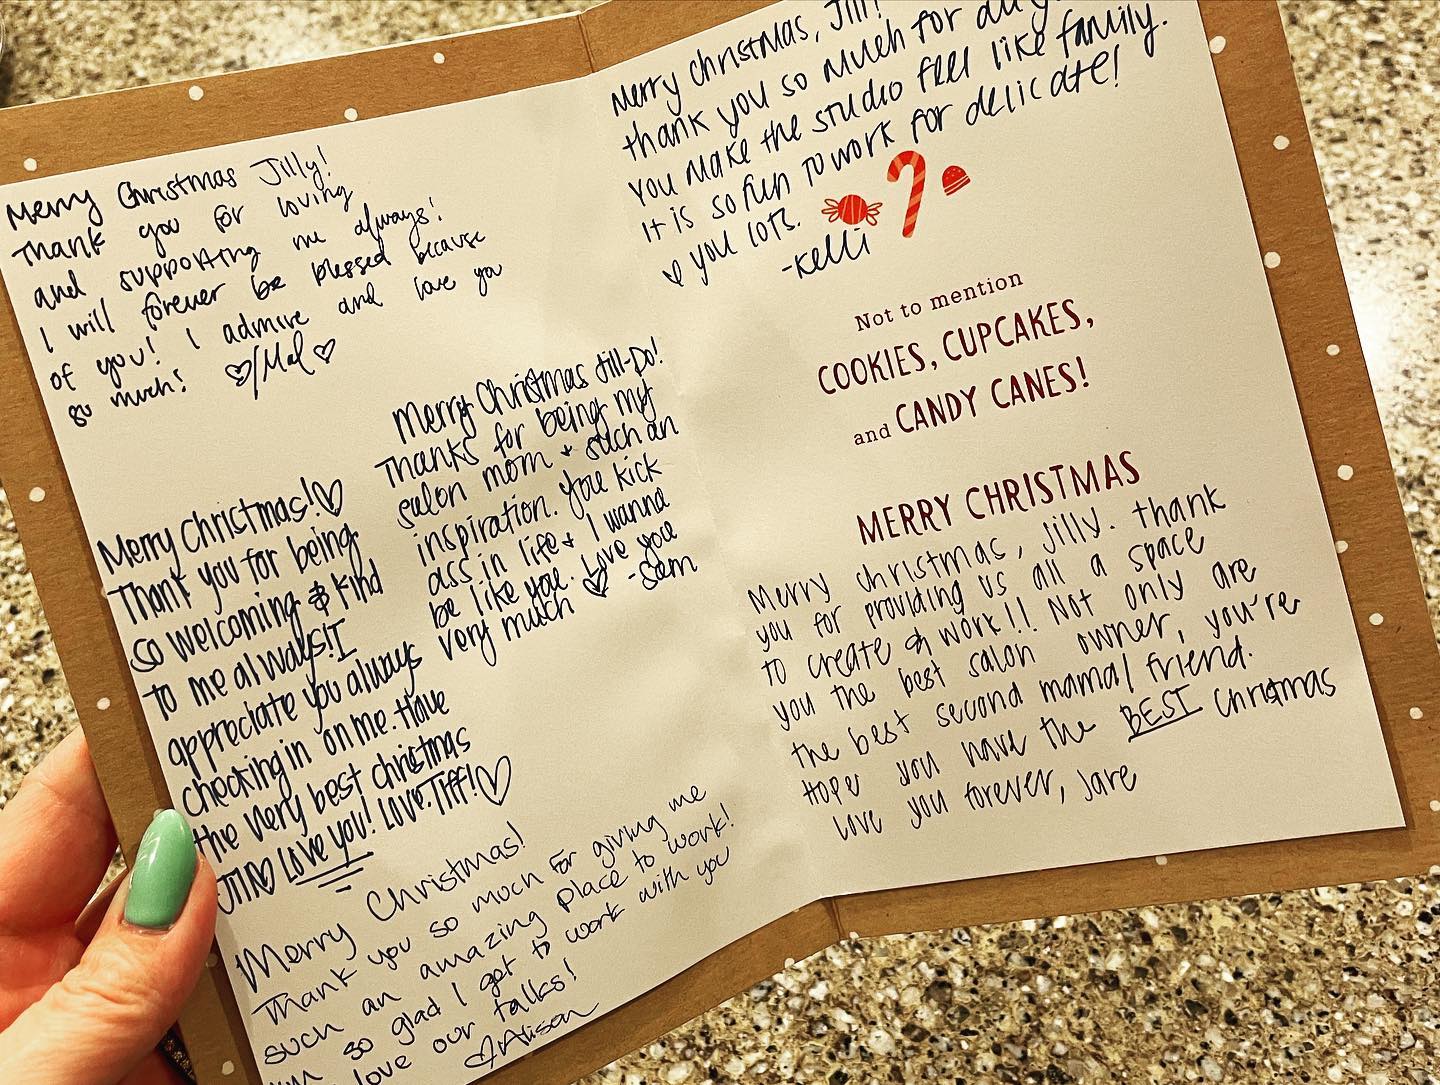 Merry Christmas Jilly!
Thank you for loving
and supporting me always!
I will forever be blessed because
of you! I admire and love you
so much! ♡/Mal ♡
Merry Christmas Jill-Do!
Thanks for being my
salon mom + such an
inspiration. You kick
ass in life + I wanna
be like you. Love you
very much ♡ -Sam
Merry Christmas!♡
Thank you for being
so welcoming & kind
to me always! I
appreciate you always
checking in on me. Have
the very best christmas
Jill♡ Love you! Love, Tiff!♡
Merry Christmas!
Thank you so much for giving me
such an amazing place to work!
I'm so glad I get to work with you
love our talks!
♡Alison
Merry Christmas, Jill!
thank you so much for all
you make the studio feel like family.
It is so fun to work for delicate!
♡ you lots.
-Kelli
Not to mention
COOKIES, CUPCAKES,
and CANDY CANES!
MERRY CHRISTMAS
Merry christmas, Jilly. thank
you for providing us all a space
to create & work!! Not only are
you the best salon owner, you're
the best second mama/friend.
Hope you have the BEST christmas
love you forever, Jare